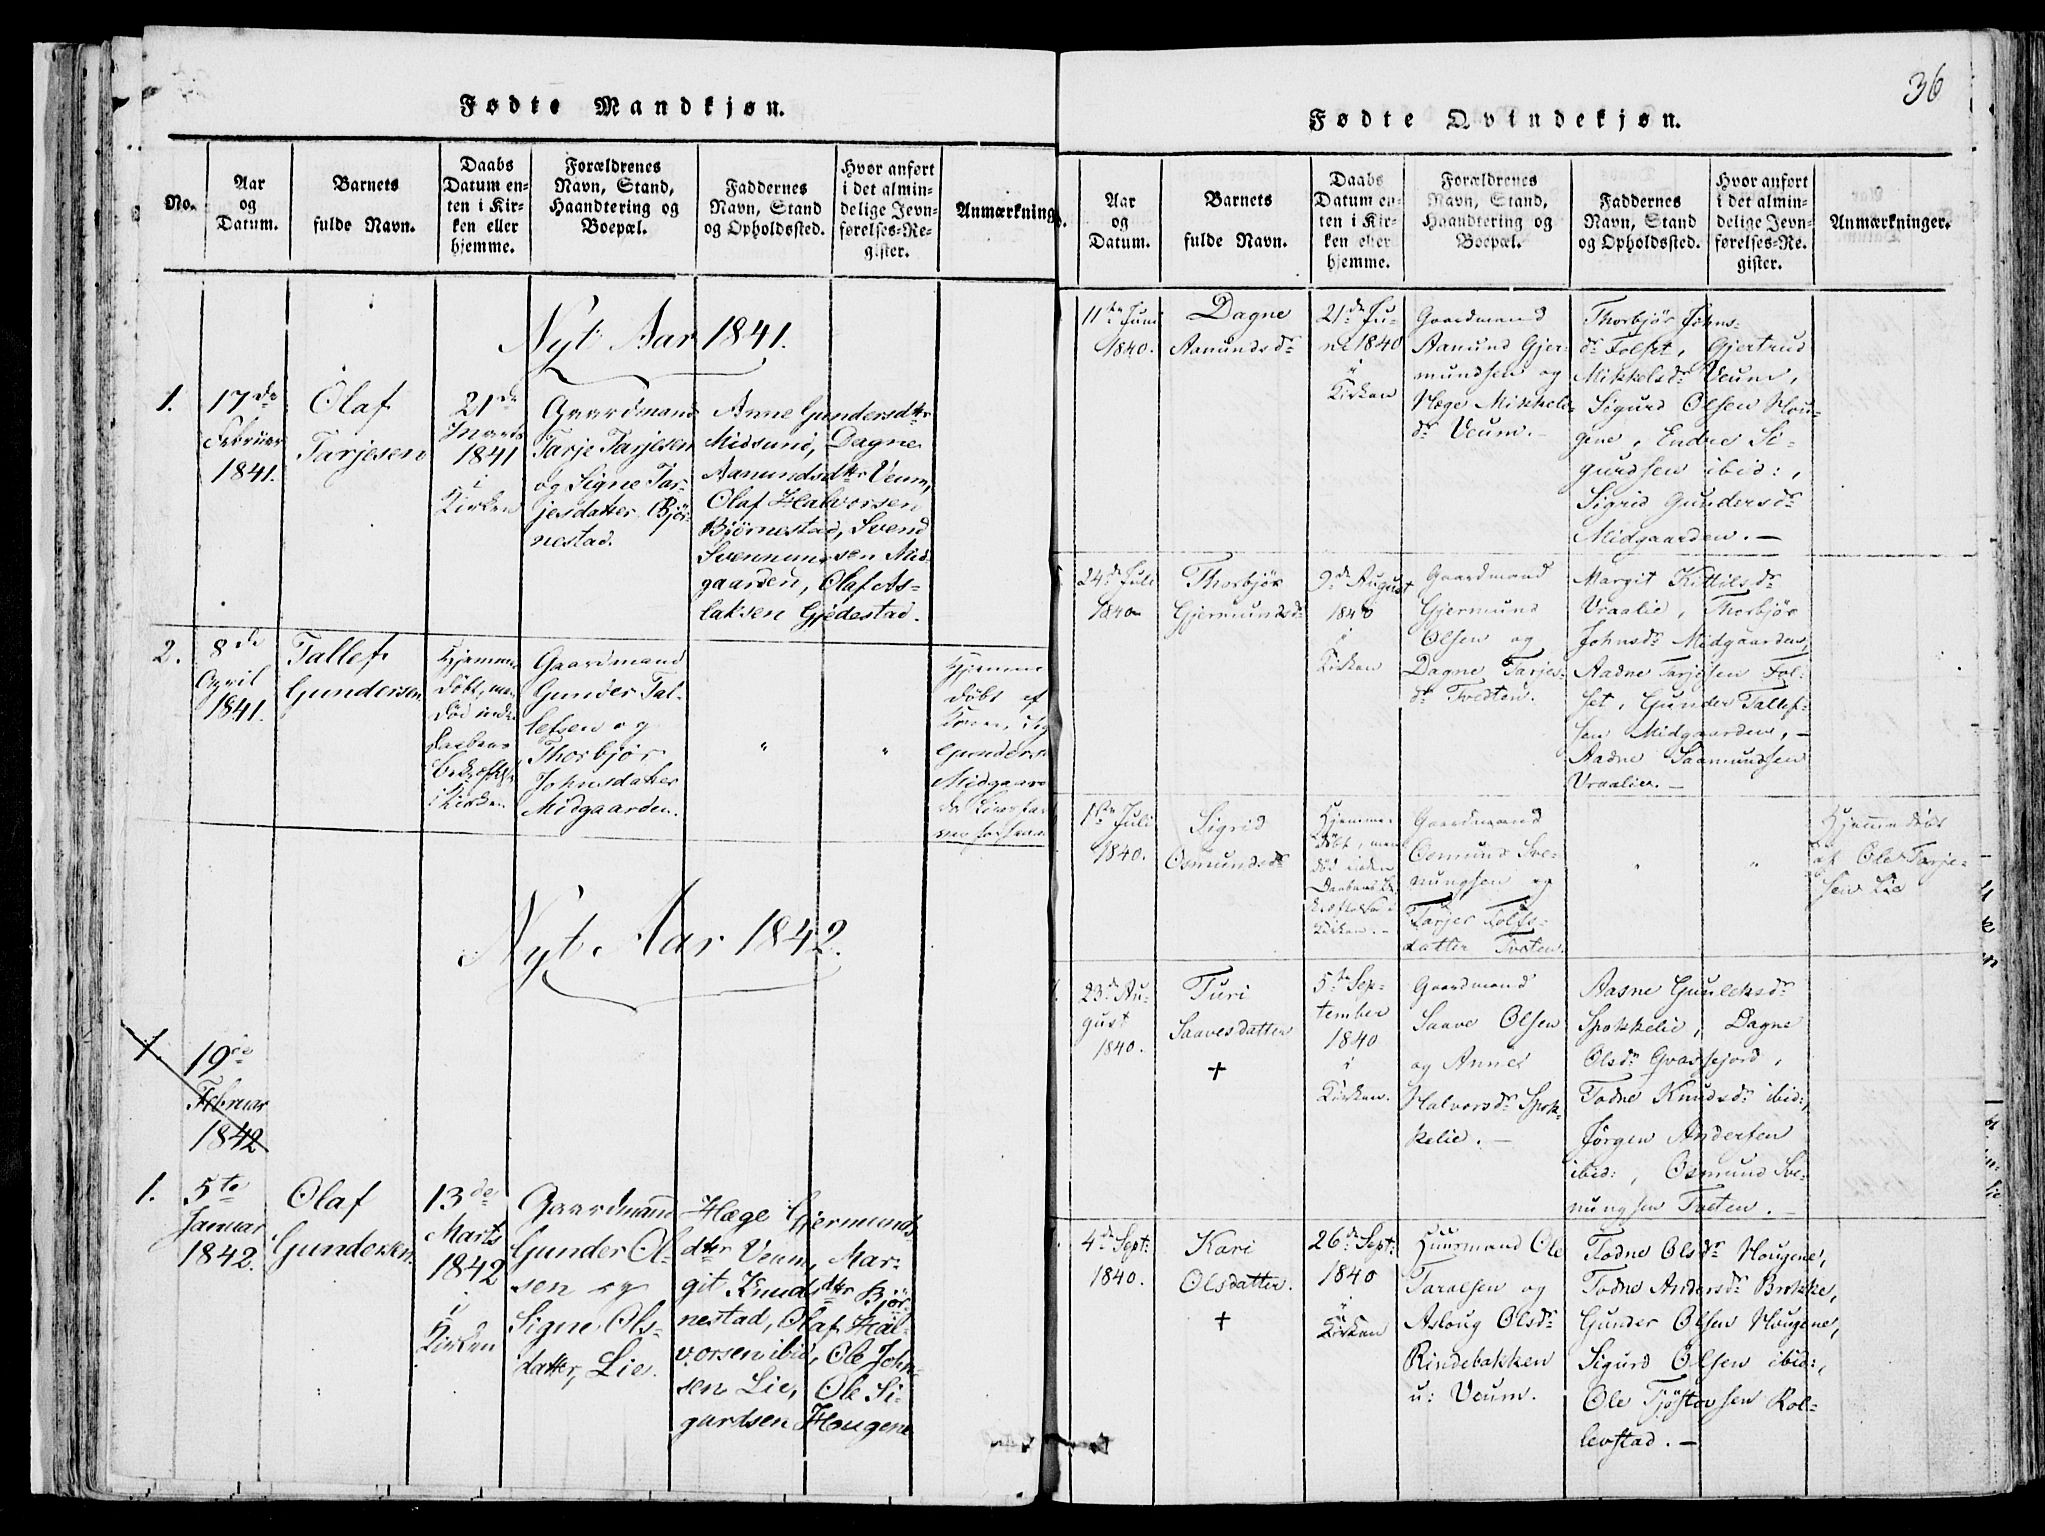 Fødte Mandkjøn.
No.
Aar
og
Datum.
Barnets
fulde Navn.
Daabs
Datum en-
ten i Kir-
ken eller
hjemme.
Forældrenes
Navn, Stand,
Haandtering og
Boepæl.
Faddernes
Navn, Stand
og Opholdssted.
Hvor anført
i det almin-
delige Jevn-
førelses-Re-
gister.
Anmærkning
Nyt Aar 1841.
1.
17de
Februar
1841.
Olaf
Tarjesen
21de
Marts
1841
i
Kirken
Gaardmand
Tarje Tarjesen
og Signe Tar-
jesdatter Bjør-
nestad.
Anne Gundersdtr
Midsund, Dagne
Aamundsdtr Veum,
Olaf Halvorsen
Bjørnestad, Svend
Svennumsen Mid-
gaarden, Olaf As-
laksen Gjedestad.
2.
8de
April
1841.
Tallef
Gundersen
Hjemme
døbt, men
død inden
Daabens
i Kirken.
Gaardmand
Gunder Tal-
lefsen og
Thorbjør
Johnsdatter
Midgaarden.
"
"
Hjemme
døbt af
Gunders
Midgaar
Nyt Aar 1842.
1
19de
Februar
1842
1.
5te
Januar
1842.
Olaf
Gundersen
13de
Marts
1842
i
Kirken
Gaardmand
Gunder Ol-
sen og
Signe Ols-
datter, Lie.
Hæge Gjermunds
dtr Veum, Mar-
git Knudsdtr Bjør-
nestad, Olaf Hal-
vorsen ibid, Ole John-
sen Lie, Ole Si-
gurdsen Hougene
36
Fødte Qvindekjøn.
Aar
og
Datum.
Barnets
fulde Navn.
Daabs
Datum en-
ten i Kir-
ken eller
hjemme.
Forældrenes
Navn, Stand,
Haandtering og
Boepæl.
Faddernes
Navn, Stand
og Opholdssted.
Hvor anført
i det almin-
delige Jevn-
førelses-Re-
gister.
Anmærkninger.
11te Juni
1840.
Dagne
Aamundsdr
21de Ju-
ni 1840
i
Kirken
Gaardmand
Aamund Gjer-
mundsen og
Hæge Mikkels-
dr Veum.-
Thorbjør Johns-
dr Folset, Gjertrud
Mikkelsdr Veum,
Sigurd Olsen Hou-
gene, Endre Si-
gurdsen ibid:,
Sigrid Gundersdr
Midgaarden.-
24de Juli
1840
Thorbjør
Gjermundsdr
9de August
1840
i
Kirken
Gaardmand
Gjermund
Olsen og
Dagne Tarjes-
dr Tvedten.
Margit Kittilsdr
Vraalie, Thorbjør
Johnsdr Midgaarden,
Aadne Tarjesen Fol-
set, Gunder Tallef-
sen Midgaarden,-
Aadne Saamundsen
Vraalie.-
1ste Juli
1840.
Sigrid
Osmundsdr
Hjemme
døbt, men
død inden
Daabens Be-
kræftelse i
Kirken.-
Gaardmand
Osmund Sve-
nungsen og
Tarjer Tolfs-
datter Tveten.
"
"
Hjemmedøbt
af Ole Tarje-
sen Lie
23de Au-
gust
1840.
Turi
Saavesdatter
+
5te Sep-
tember
1840
i
Kirken.
Gaardmand
Saave Olsen
og Anne
Halvorsdr Spok-
kelie.-
Aasne Gunleksdr
Spokkelie, Dagne
Olsdr Gvasfjord,
Todne Knudsdr ibid:,
Jørgen Andersen
ibid:, Osmund Sve-
nungsen Tveten.-
4de Sept:
1840.
Kari
Olsdatter.
+
26de Sept:
1840
i
Kirken
Huusmand Ole
Taralsen og
Asloug Olsdr
Rindebakken
u: Veum.
Todne Olsdr Hougene,
Todne Andersdr Brokke,
Gunder Olsen Hougene,
Sigurd Olsen ibid:,
Ole Tjøstovsen Rol-
levstad.-